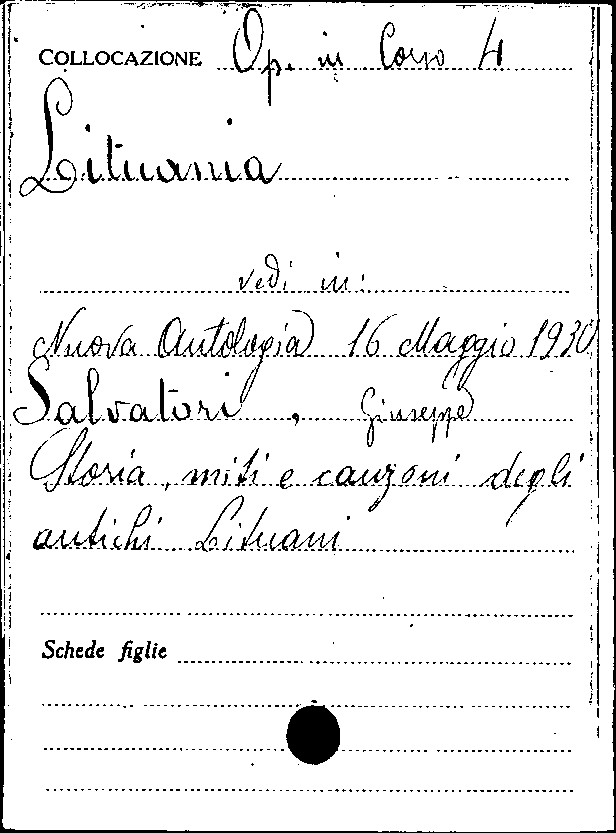 COLLOCAZIONE Op. in Corso 4
Lituania
vedi in:
Nuova Antologia 16 Maggio 1930
Salvatori, Giuseppe
Storia, miti e canzoni degli
antichi Lituani
Schede figlie